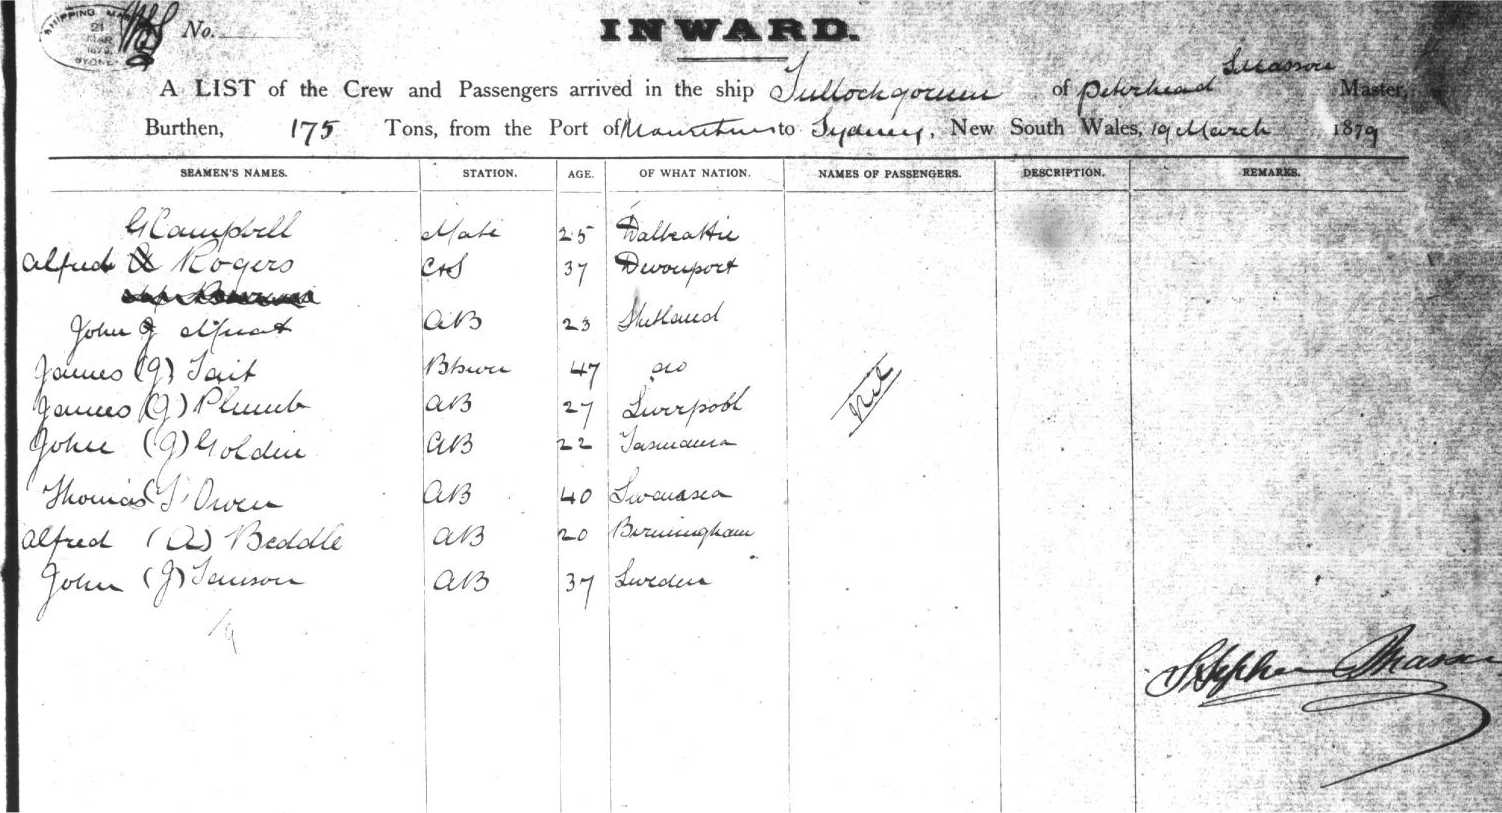 SHIPPING MA
21
MAR
1879
SYDNEY
No.
INWARD.
S Masson
A LIST of the Crew and Passengers arrived in the ship Tullochgorum of Peterhead Master,
Burthen, 175 Tons, from the Port of Mauritius to Sydney, New South Wales, 19 March 1879
SEAMEN'S NAMES. STATION. AGE. OF WHAT NATION. NAMES OF PASSENGERS. DESCRIPTION. REMARKS.
G Campbell Mate 25 Dalbeattie
Alfred Rogers C&S 37 Devonport
John J Mouat AB 23 Shetland
James (J) Tait Bswn 47 do
Nil
James (J) Plumb AB 27 Liverpool
John (J) Golden AB 22 Tasmania
Thomas (T) Owen AB 40 Swansea
Alfred (A) Beddle AB 20 Birmingham
John (J) AB 37 Sweden
9
Stephen Masson